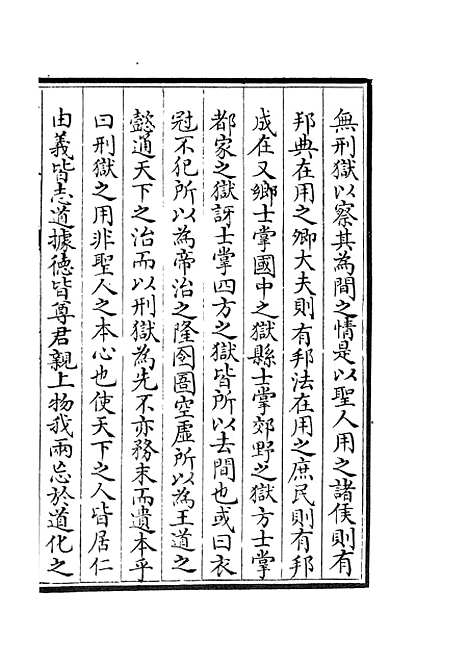 無刑獄以察其為間之情是以聖人用之諸侯則有
邦典在用之卿大夫則有邦法在用之庶民則有邦
成在又鄉士掌國中之獄縣士掌郊野之獄方士掌
都家之獄訝士掌四方之獄皆所以去間也或曰衣
冠不犯所以為帝治之隆囹圄空虛所以為王道之
懿通天下之治而以刑獄為先不亦務末而遺本乎
曰刑獄之用非聖人之本心也使天下之人皆居仁
由義皆志道據徳皆尊君親上物我兩忘於道化之